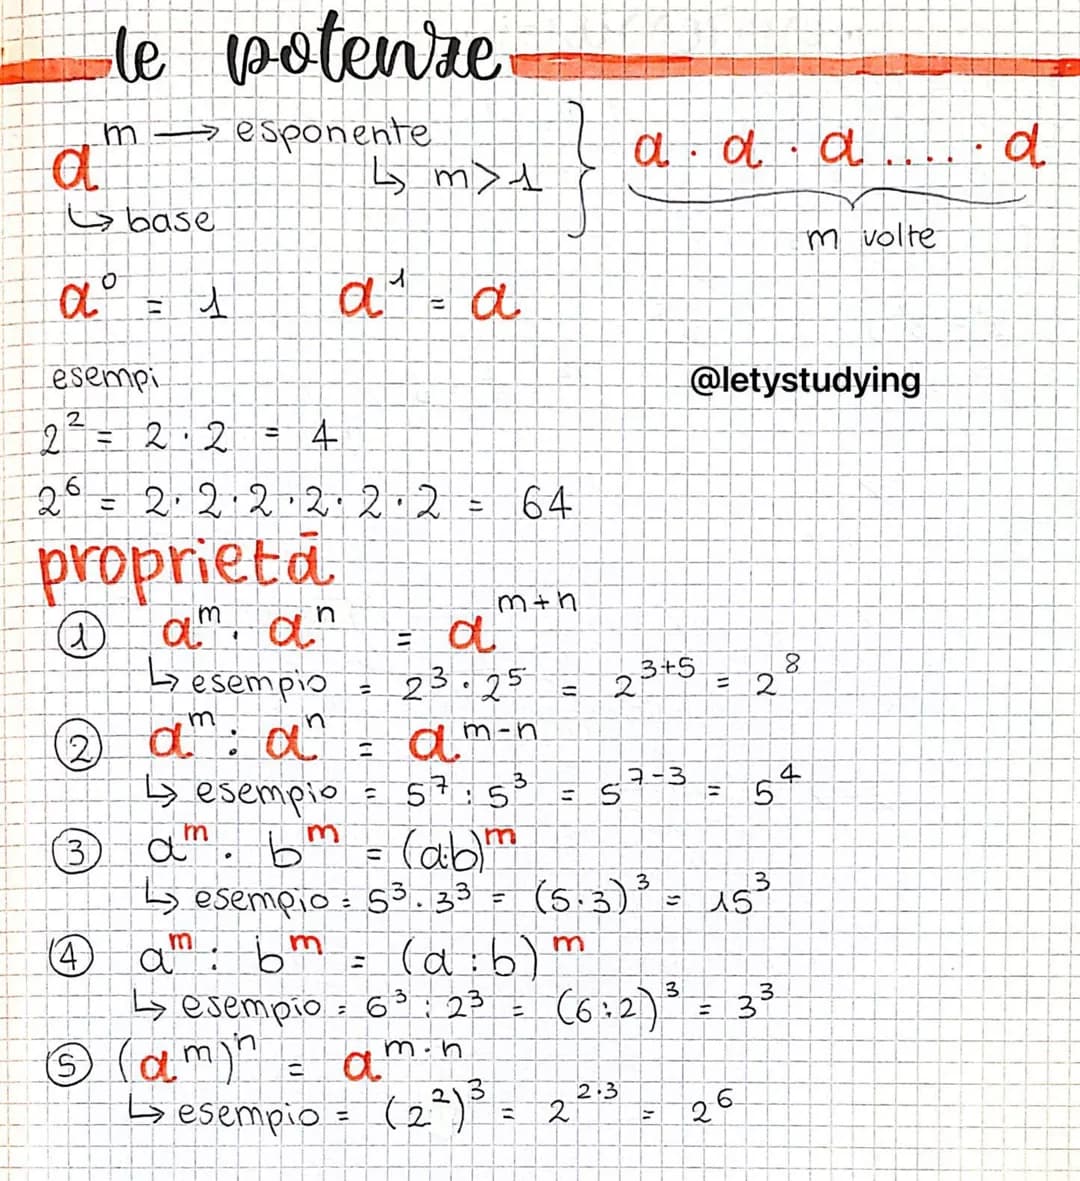 le potenze
aᵐ → esponente
↳ m>1 } a · a · a .... · a
↳ base
m volte
a⁰ = 1 a¹ = a
esempi
@letystudying
2² = 2 · 2 = 4
2⁶ = 2 · 2 · 2 · 2 · 2 · 2 = 64
proprietā
① aᵐ · aⁿ = aᵐ⁺ⁿ
↳ esempio = 2³ · 2⁵ = 2³⁺⁵ = 2⁸
② aᵐ : aⁿ = aᵐ⁻ⁿ
↳ esempio = 5⁷ : 5³ = 5⁷⁻³ = 5⁴
③ aᵐ · bᵐ = (a·b)ᵐ
↳ esempio = 5³ · 3³ = (5·3)³ = 15³
④ aᵐ : bᵐ = (a : b)ᵐ
↳ esempio = 6³ : 2³ = (6:2)³ = 3³
⑤ (aᵐ)ⁿ = aᵐ·ⁿ
↳ esempio = (2²)³ = 2²·³ = 2⁶